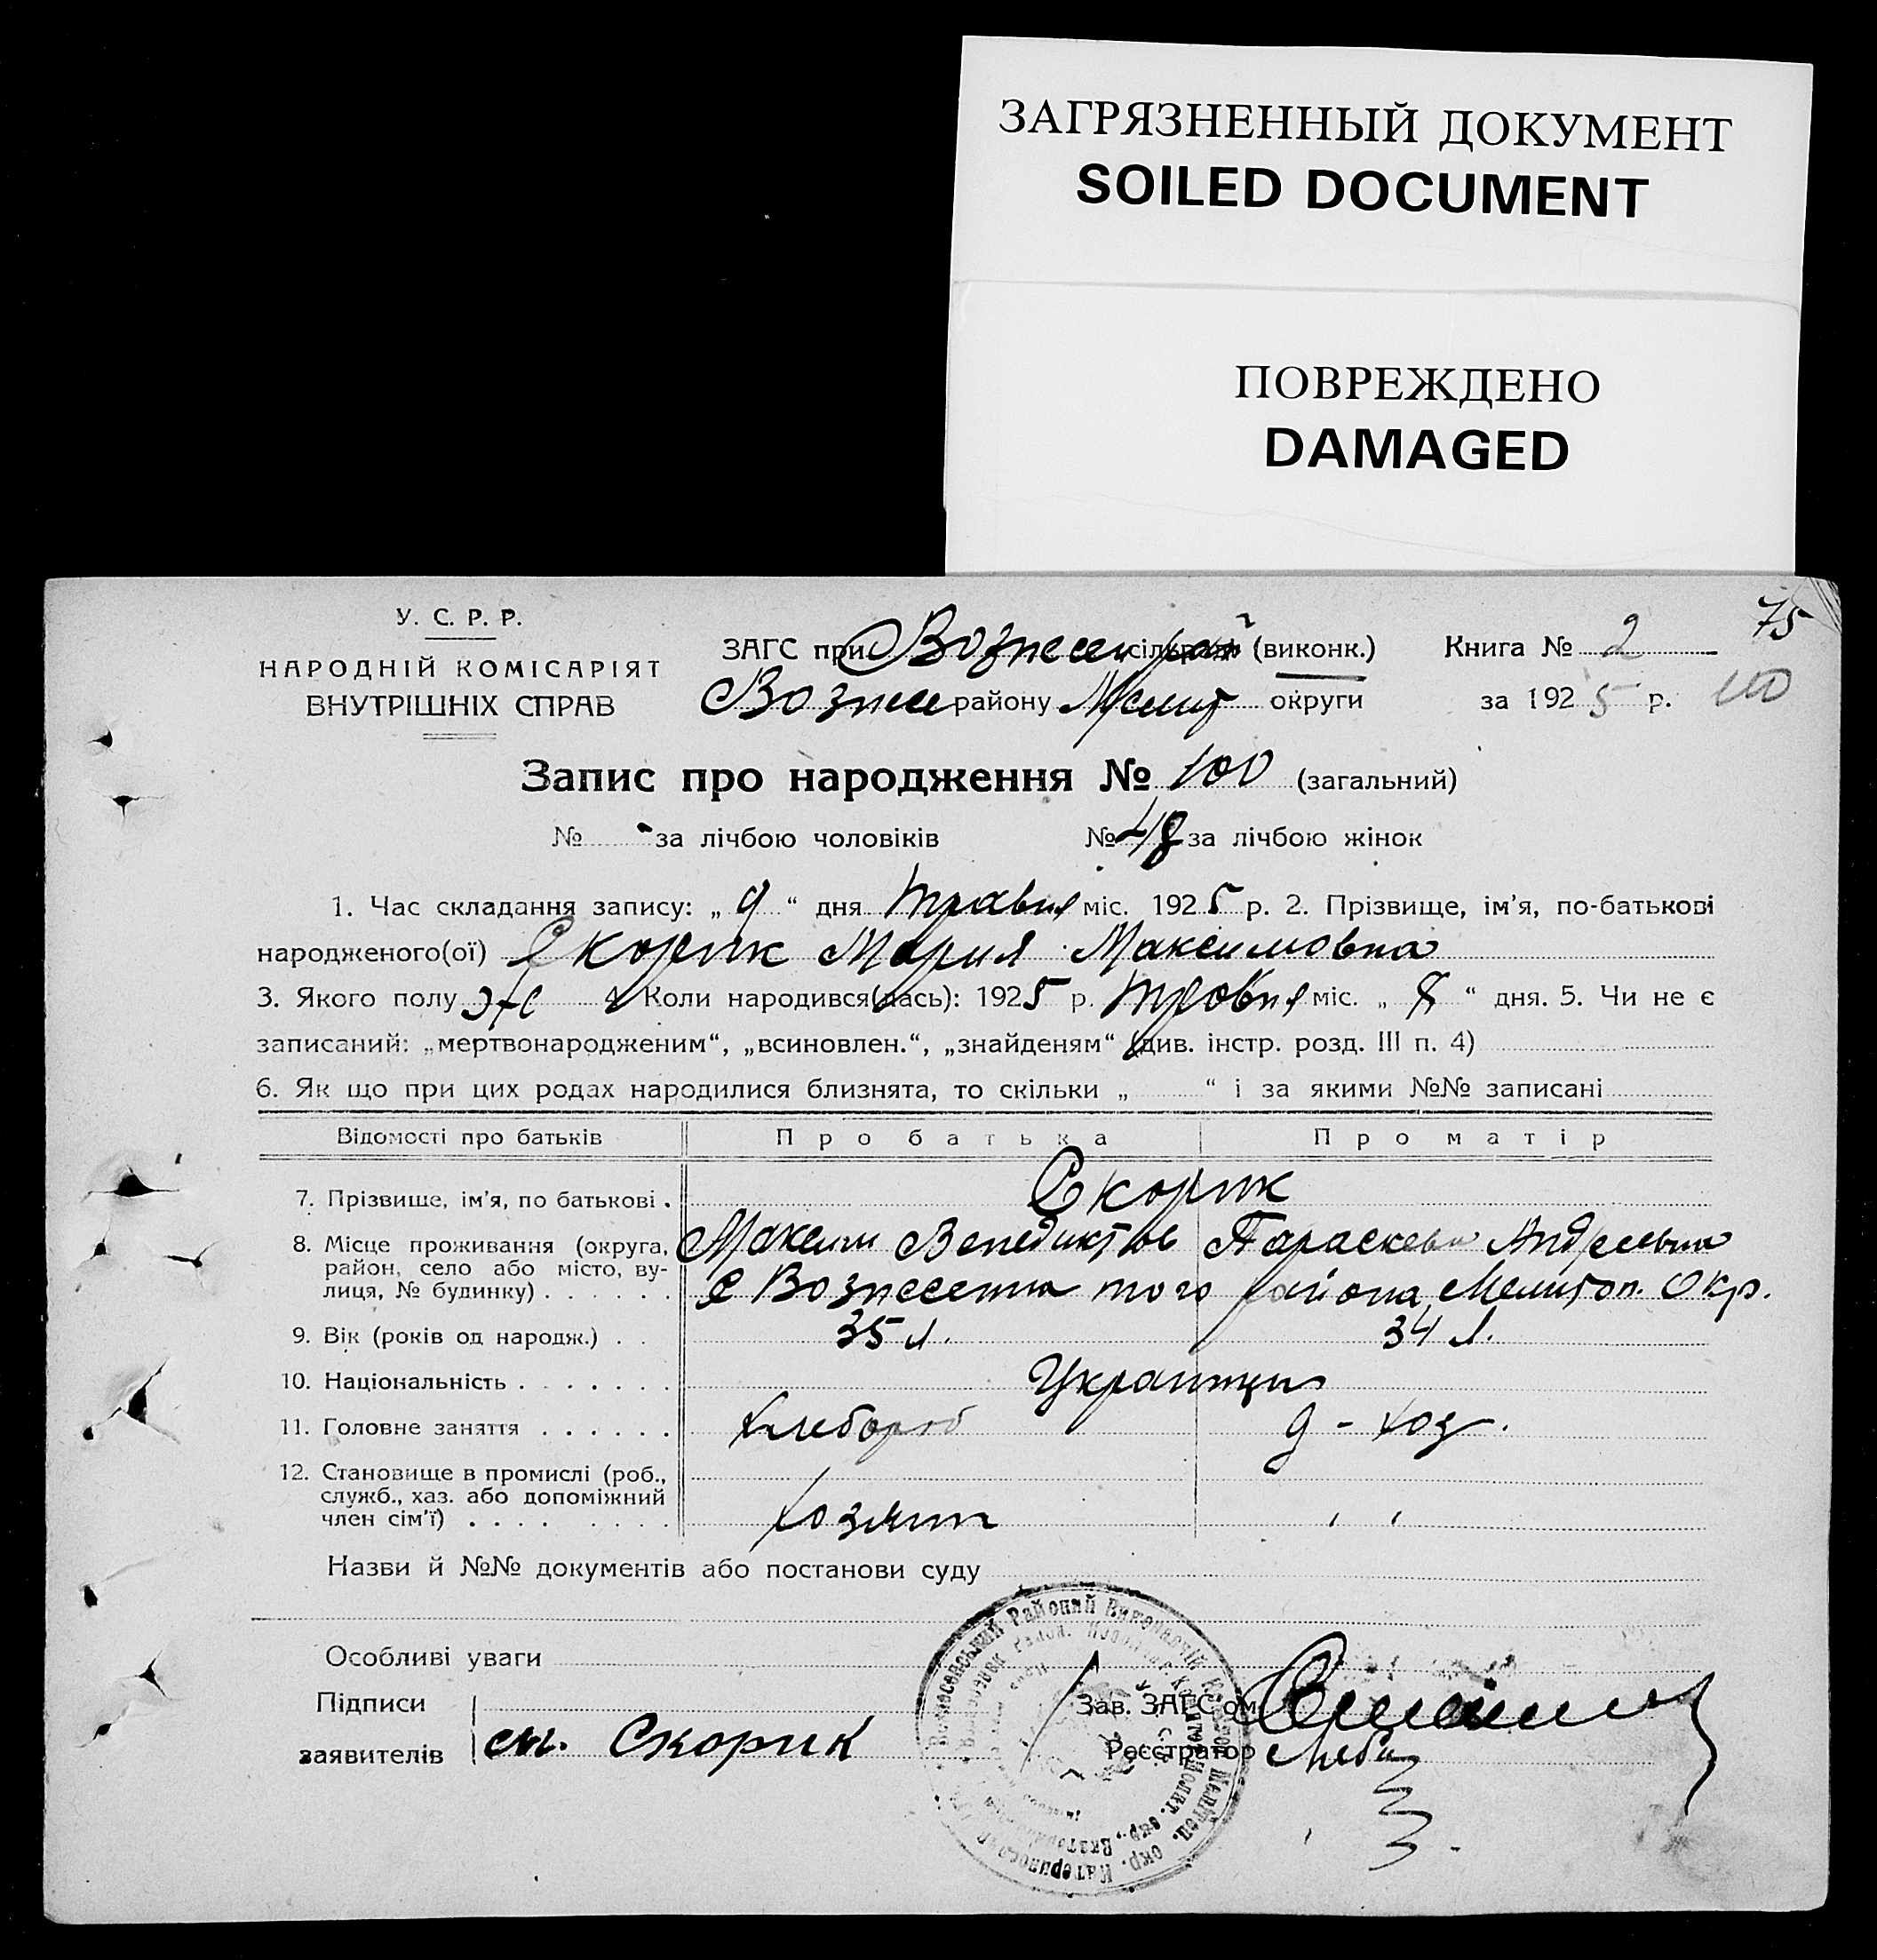 ЗАГРЯЗНЕННЫЙ ДОКУМЕНТ
SOILED DOCUMENT
ПОВРЕЖДЕНО
DAMAGED
75
У. С. Р. Р.
НАРОДНІЙ КОМІСАРІЯТ
ВНУТРІШНІХ СПРАВ
ЗАГС при Вознесен рай (виконк.) Книга № 2
Вознес району Мелит округи за 1925 р. 100
Запис про народження № 100 (загальний)
№ - за лічбою чоловіків № 48 за лічбою жінок
1. Час складання запису: „ 9 “ дня травня міс. 1925 р. 2. Прізвище, ім'я, по-батькові
народженого(ої) Скорик Мария Максимовна
3. Якого полу ж 4. Коли народився(лась): 1925 р. травня міс. „ 8 “ дня. 5. Чи не є
записаний: „мертвонародженим“, „всиновлен.“, „знайденям“ (див. інстр. розд. III п. 4)
6. Як що при цих родах народилися близнята, то скільки „ “ і за якими №№ записані
Відомості про батьків Про батька Про матір
7. Прізвище, ім'я, по батькові . Скорик
Максим Венедиктов Параскева Андреевна
8. Місце проживання (округа, район, село або місто, вулиця, № будинку) . . . . . . с Вознесенка того района Мелитоп. Окр.
9. Вік (років од народж.) . . 35 л. 34 л.
10. Національність . . . . . . . Украинцы
11. Головне заняття . . . . . . Хлебороб д-хоз.
12. Становище в промислі (роб., служб., хаз. або допоміжний член сім'ї) . . . . . . . . Хозяин " "
Назви й №№ документів або постанови суду
Особливі уваги
Підписи
заявителів Скорик
Зав. ЗАГС'ом
Реєстратор